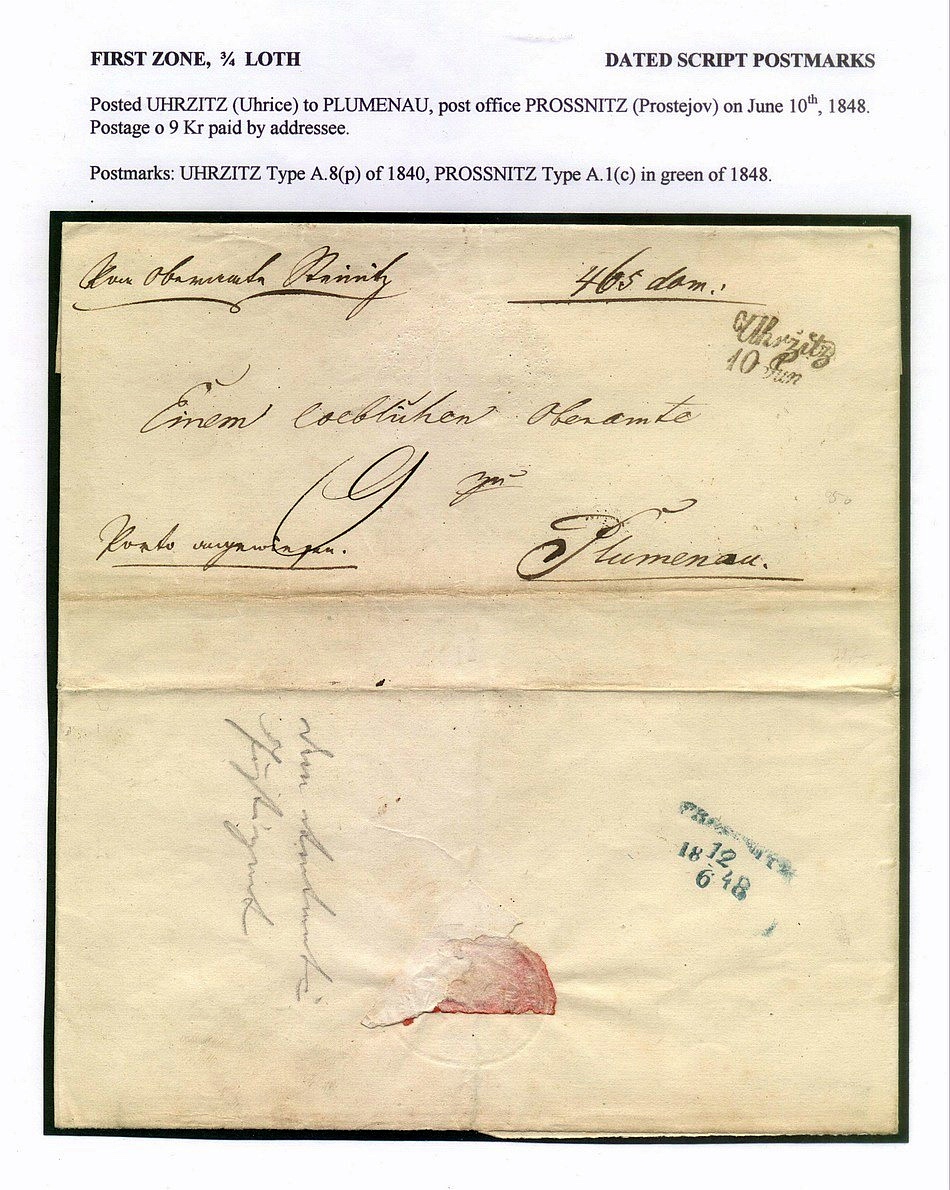 FIRST ZONE, ¾ LOTH
DATED SCRIPT POSTMARKS
Posted UHRZITZ (Uhrice) to PLUMENAU, post office PROSSNITZ (Prostejov) on June 10th, 1848.
Postage o 9 Kr paid by addressee.
Postmarks: UHRZITZ Type A.8(p) of 1840, PROSSNITZ Type A.1(c) in green of 1848.
Vom Oberamte Steinitz
465 dom:
Uhržitz
10 Jun
Einem loeblichen Oberamte
9 zu
Porto angewiesen.
Plumenau.
PROSSNITZ
18 12/6 48